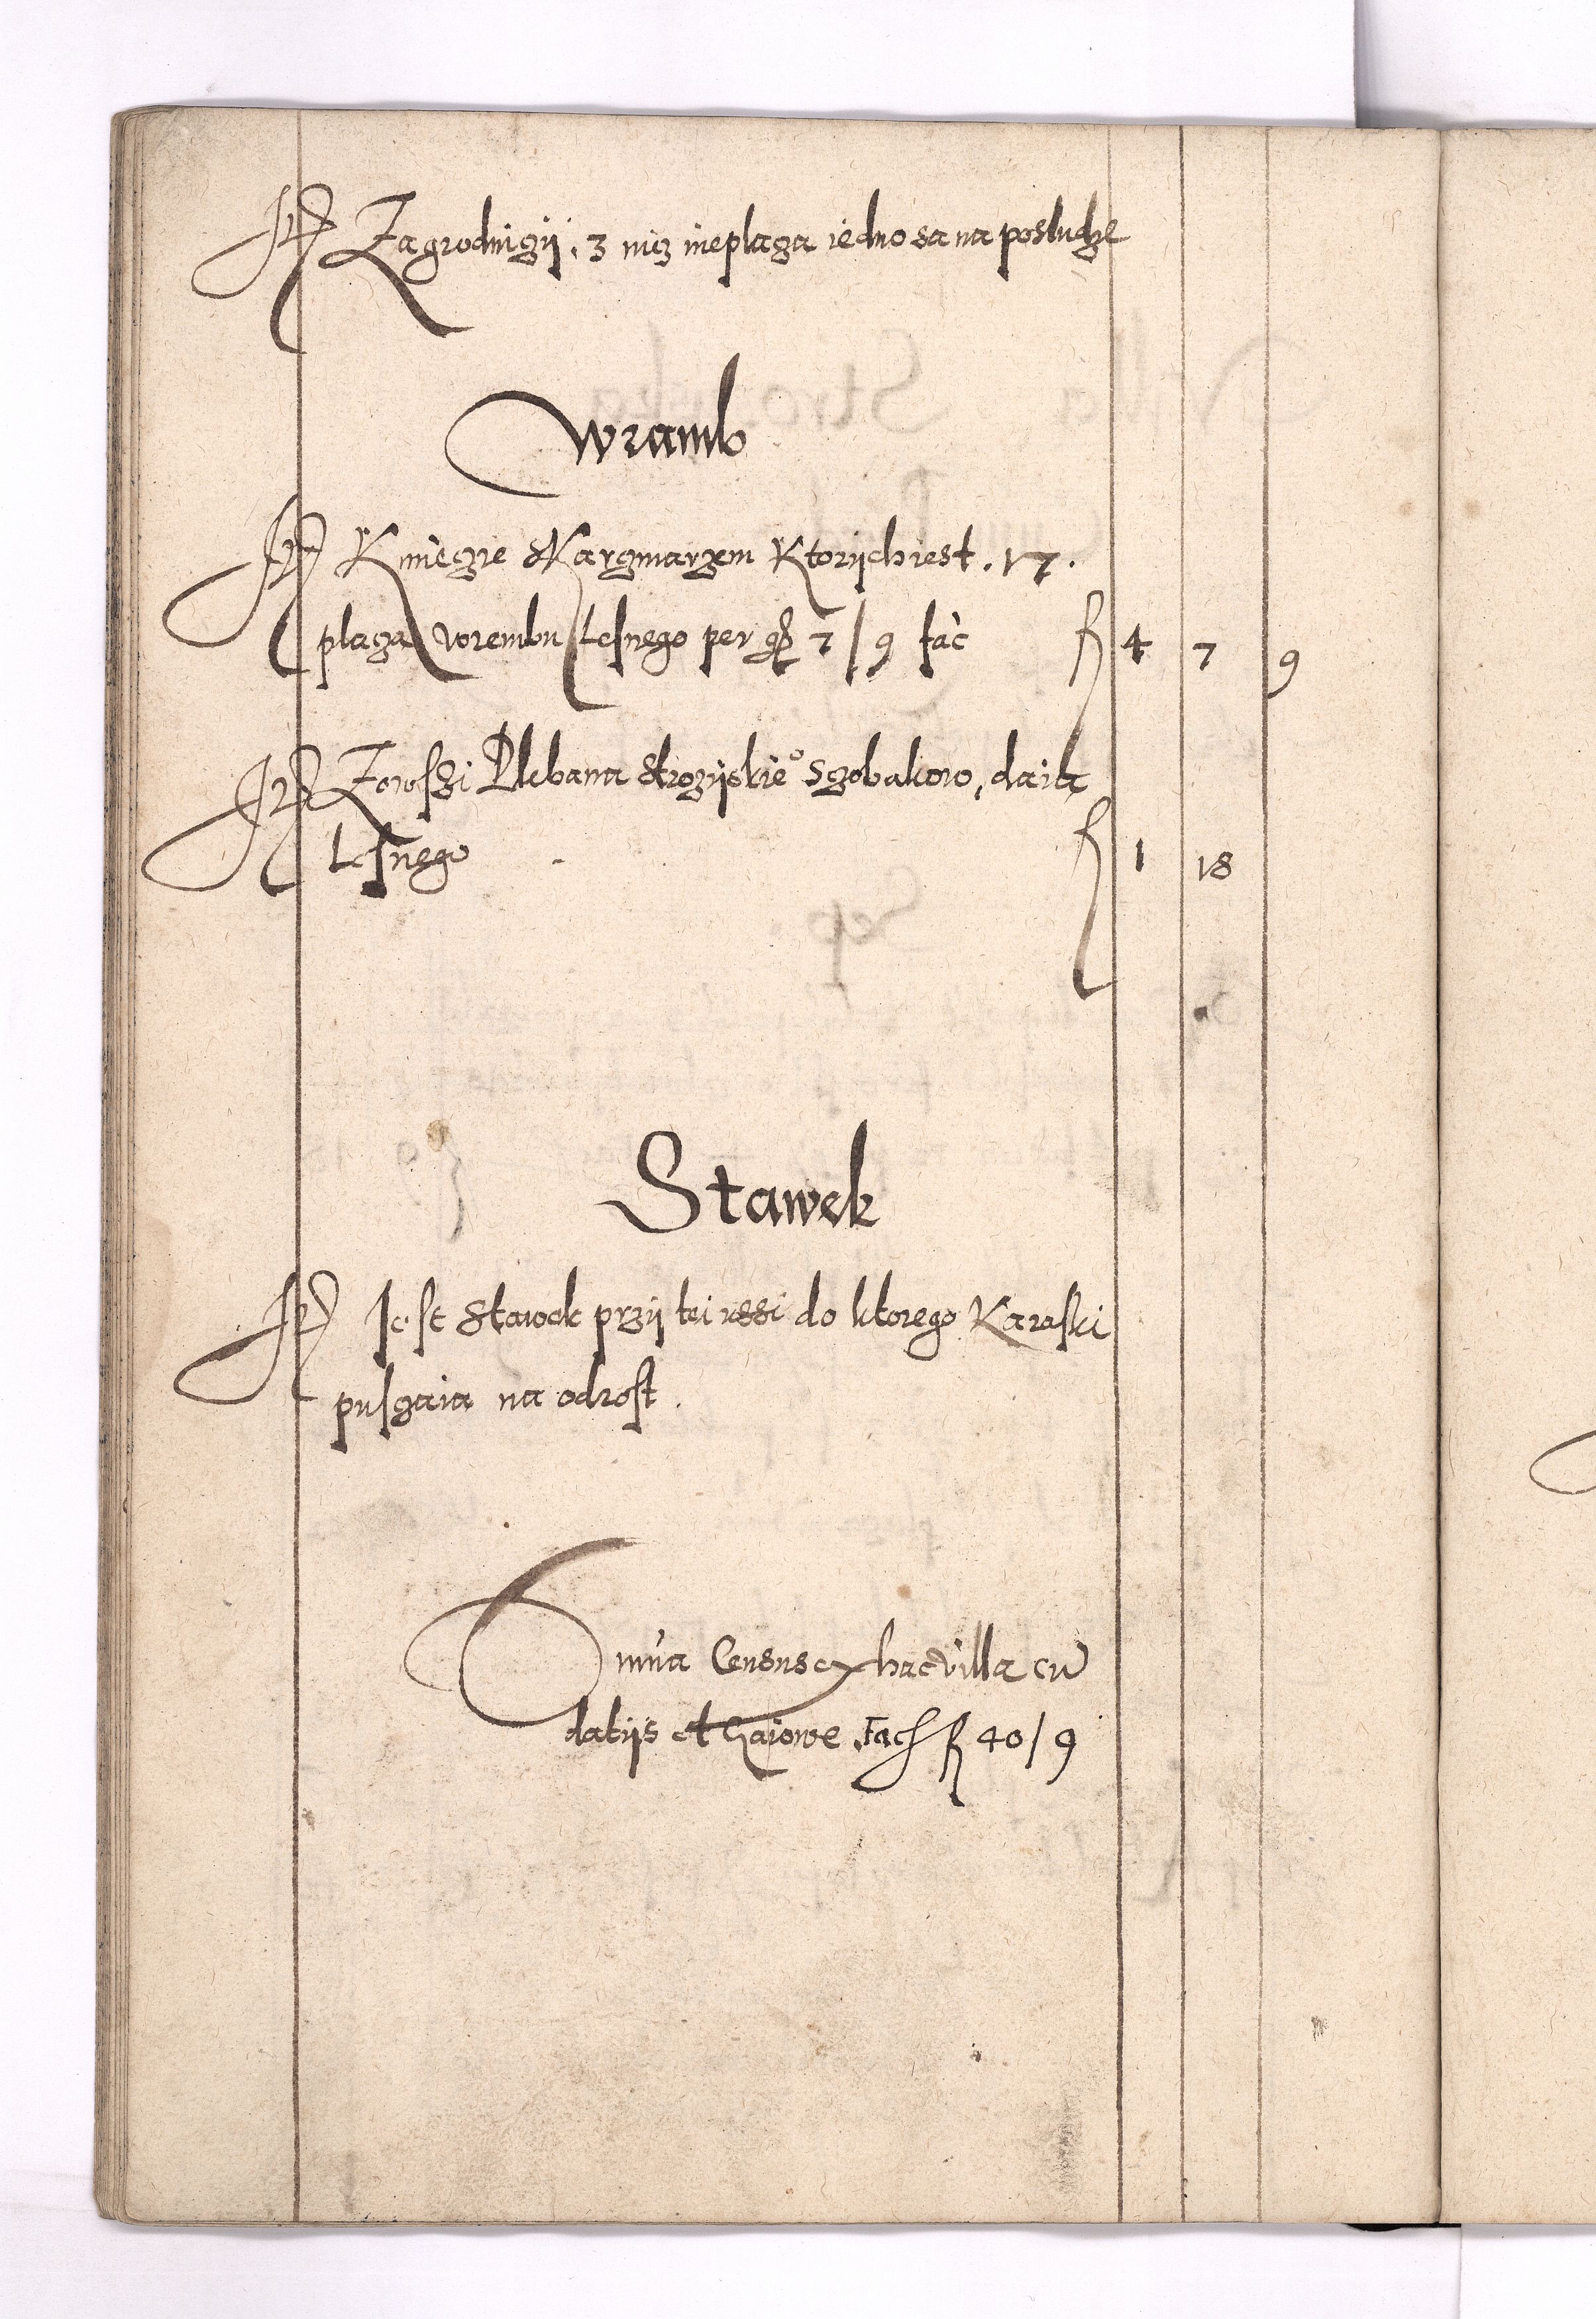 Jt Zagrodniczÿ . 3 nicz nieplacza iedno sa na posludze
Wramb
Jt Kmieczie s Karczmarzem Ktorÿch iest . 17 .
placza wrembu Lesnego per gr 7 / 9 facit fl 4 7 9
Jt Zewssi Plebana Strozÿskieo s gob akow, daia
Lesnego fl 1 18
Stawek
Jt Jest Stawek przÿ tei wssi do ktorego Karaski
pusczaia na odrost .
Omnia Census ex hac villa cu
datÿs et Gaiowe . Facit fl 40 / 9